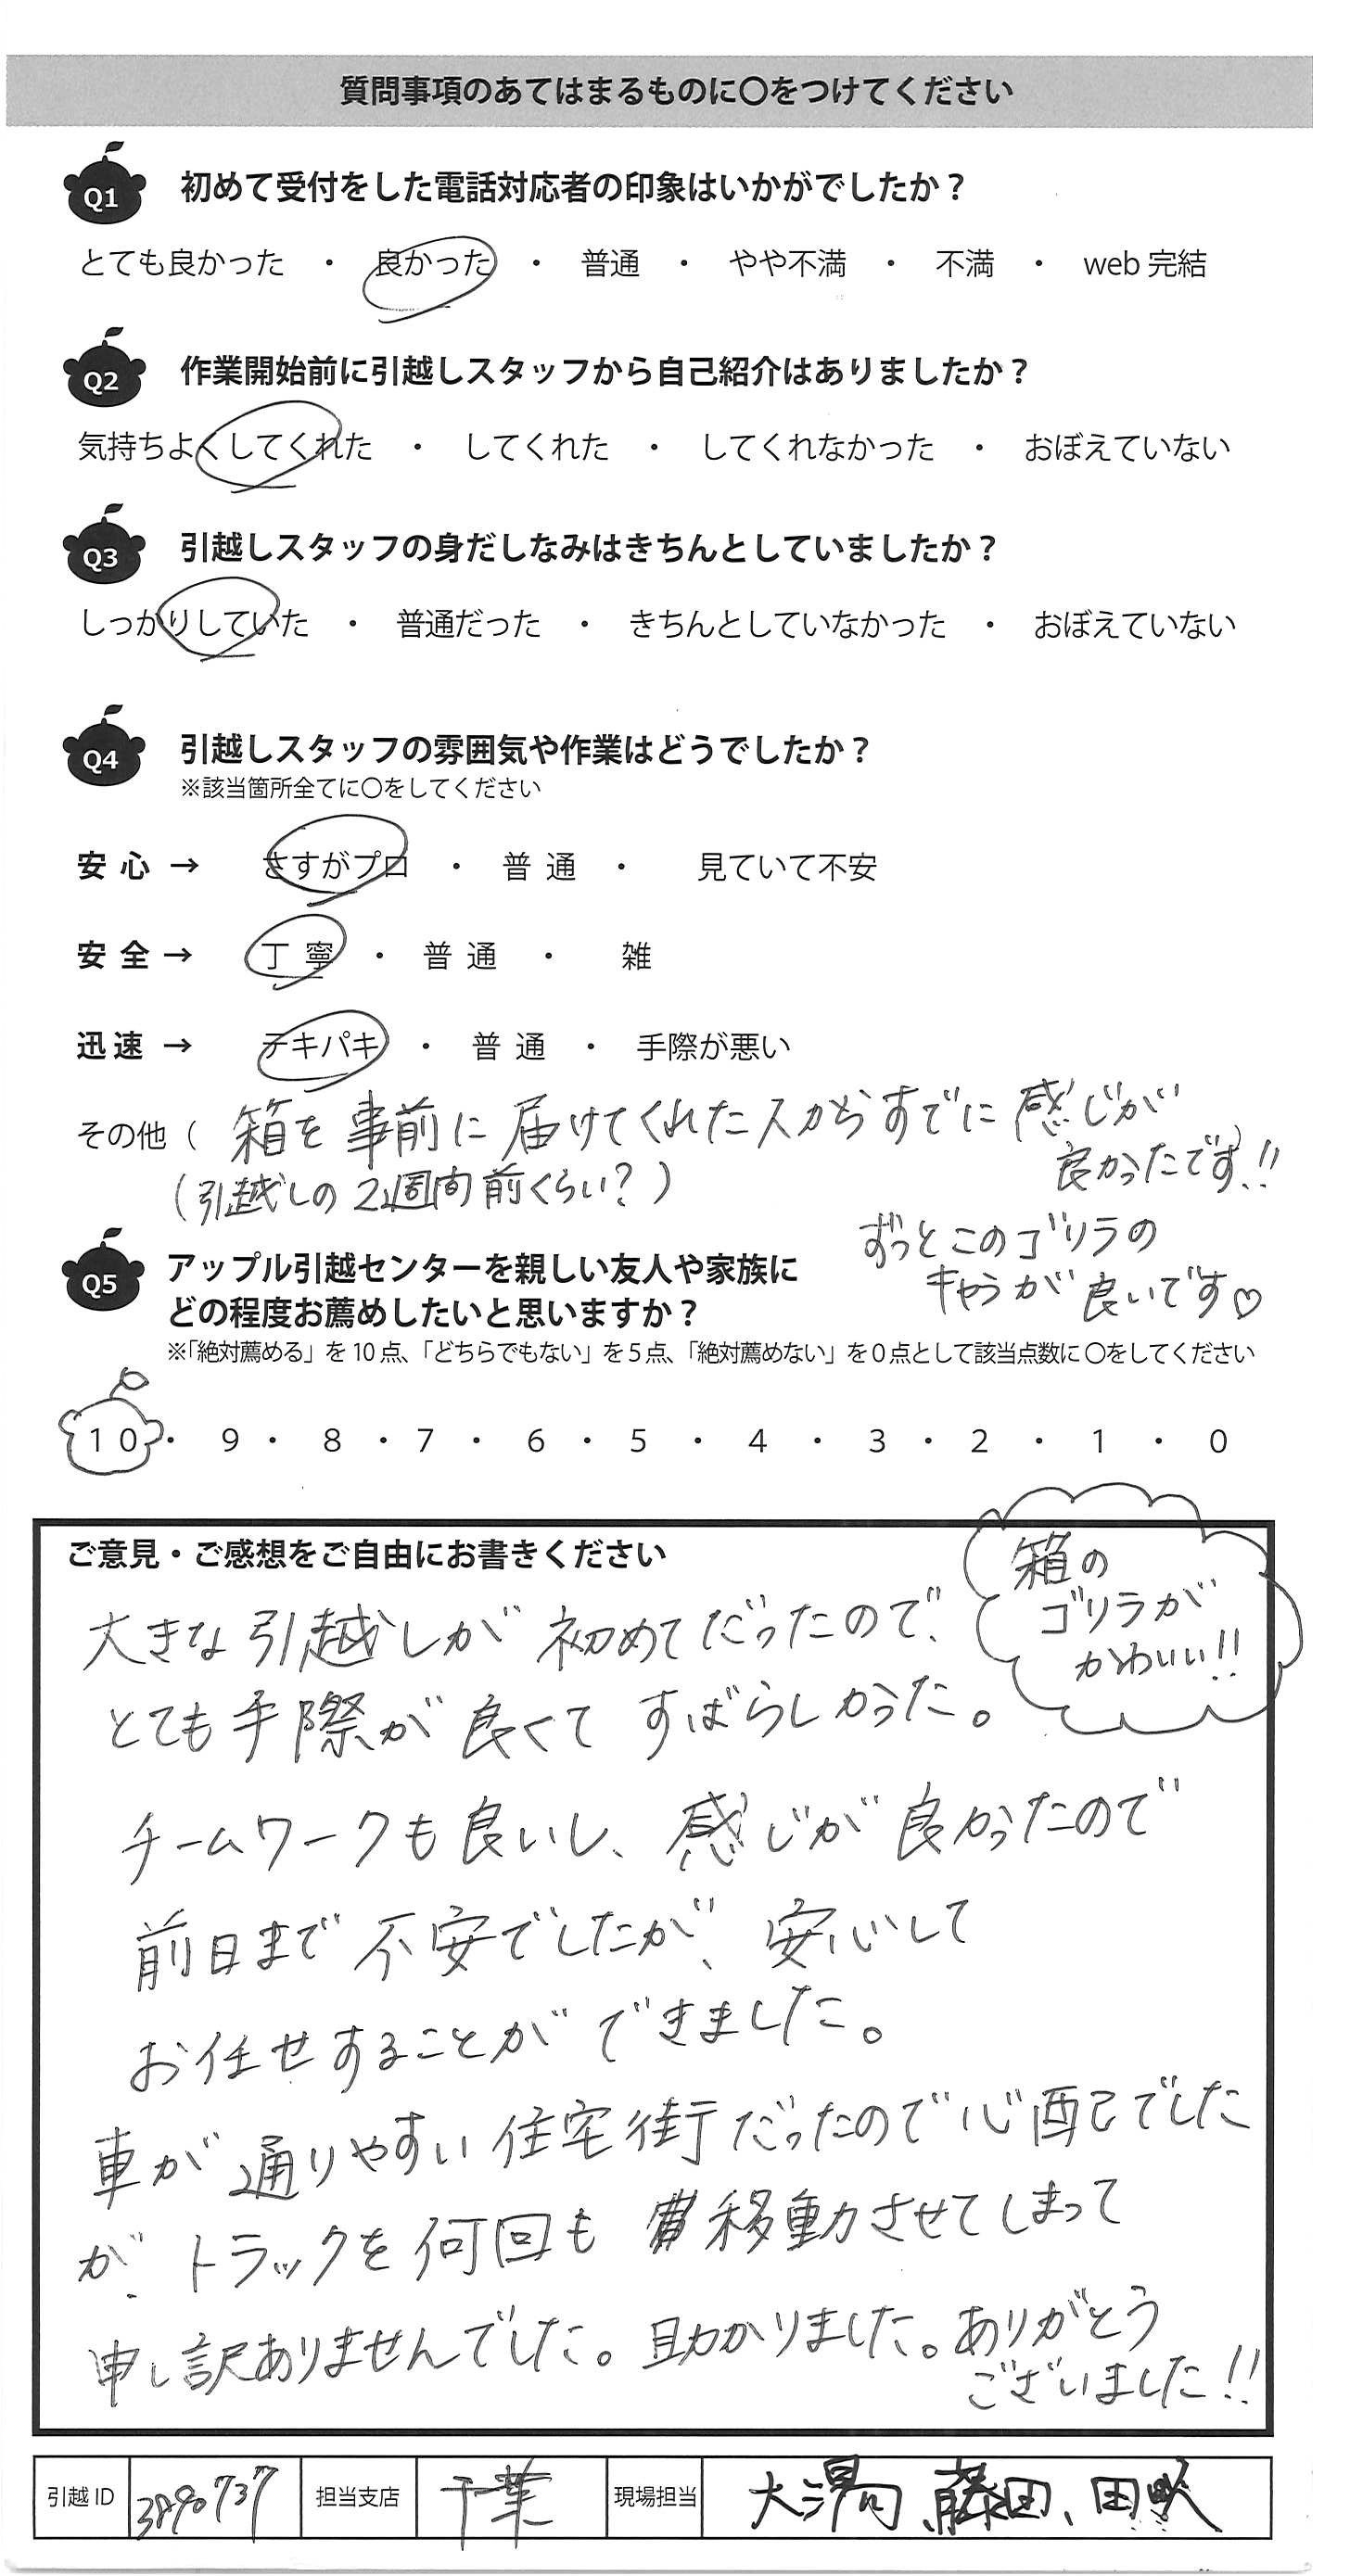 質問事項のあてはまるものに〇をつけてください
Q1 初めて受付をした電話対応者の印象はいかがでしたか？
とても良かった ・ 良かった ・ 普通 ・ やや不満 ・ 不満 ・ web完結
Q2 作業開始前に引越しスタッフから自己紹介はありましたか？
気持ちよくしてくれた ・ してくれた ・ してくれなかった ・ おぼえていない
Q3 引越しスタッフの身だしなみはきちんとしていましたか？
しっかりしていた ・ 普通だった ・ きちんとしていなかった ・ おぼえていない
Q4 引越しスタッフの雰囲気や作業はどうでしたか？
※該当箇所全てに〇をしてください
安心 → さすがプロ ・ 普通 ・ 見ていて不安
安全 → 丁寧 ・ 普通 ・ 雑
迅速 → テキパキ ・ 普通 ・ 手際が悪い
その他（ 箱を事前に届けてくれた人からすでに感じが
良かったです!!
（引越しの2週間前くらい？）
ずっとこのゴリラの
キャラが良いです♡
Q5 アップル引越センターを親しい友人や家族に
どの程度お薦めしたいと思いますか？
※「絶対薦める」を10点、「どちらでもない」を5点、「絶対薦めない」を0点として該当点数に〇をしてください
10 ・ 9 ・ 8 ・ 7 ・ 6 ・ 5 ・ 4 ・ 3 ・ 2 ・ 1 ・ 0
ご意見・ご感想をご自由にお書きください
箱の
ゴリラが
かわいい!!
大きな引越しが初めてだったので、
とても手際が良くてすばらしかった。
チームワークも良いし、感じが良かったので
前日まで不安でしたが、安心して
お任せすることができました。
車が通りやすい住宅街だったので心配でした
が、トラックを何回も移動させてしまって
申し訳ありませんでした。助かりました。ありがとう
ございました!!
引越ID 3890737 担当支店 千葉 現場担当 大湯 藤田、田